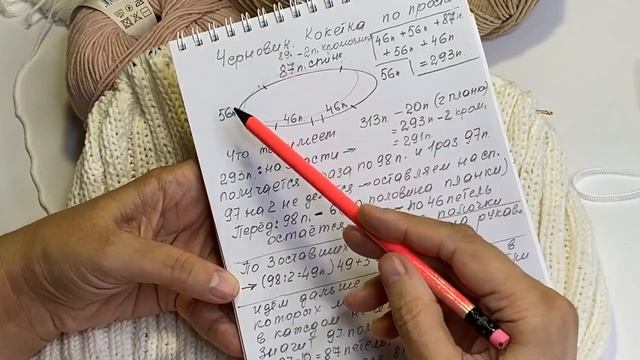 Черновик. Кокетка по прост
89п - 2п. кромочн
87п. спин
46п + 56п + 87п
+ 56п + 46п
56п = 293п.
56п
46п 46п
313п - 20п (2 планки)
= 293п - 2 кром.
= 291п.
Что имеем
293п. : на части →
получается раза по 98п. и 1 раз 97п.
97 на 2 не де → оставляем на сп.
Перёд: 98п. - половина планки)
остаётся по 46 петель
полочки
По 3 оставших рукав
→ (98:2=49п) 49+3
идём дальше в
которых
в каждом не
Значит 97 п
87 петель.